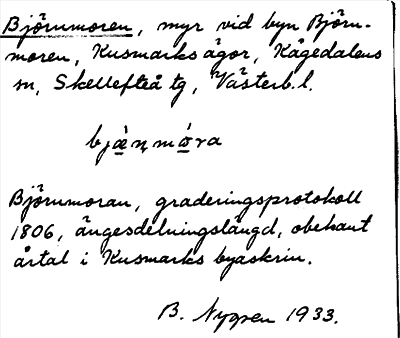 Björnmoren, myr vid byn Björn-
moren, Kusmarks ägor, Kågedalens
sn, Skellefteå tg, Västerb. l.
bjæ̀ṇmóra
Björnmoran, graderingsprotokoll
1806, ängesdelningslängd, obekant
årtal i Kusmarks byaskrin.
B. Nygren 1933.